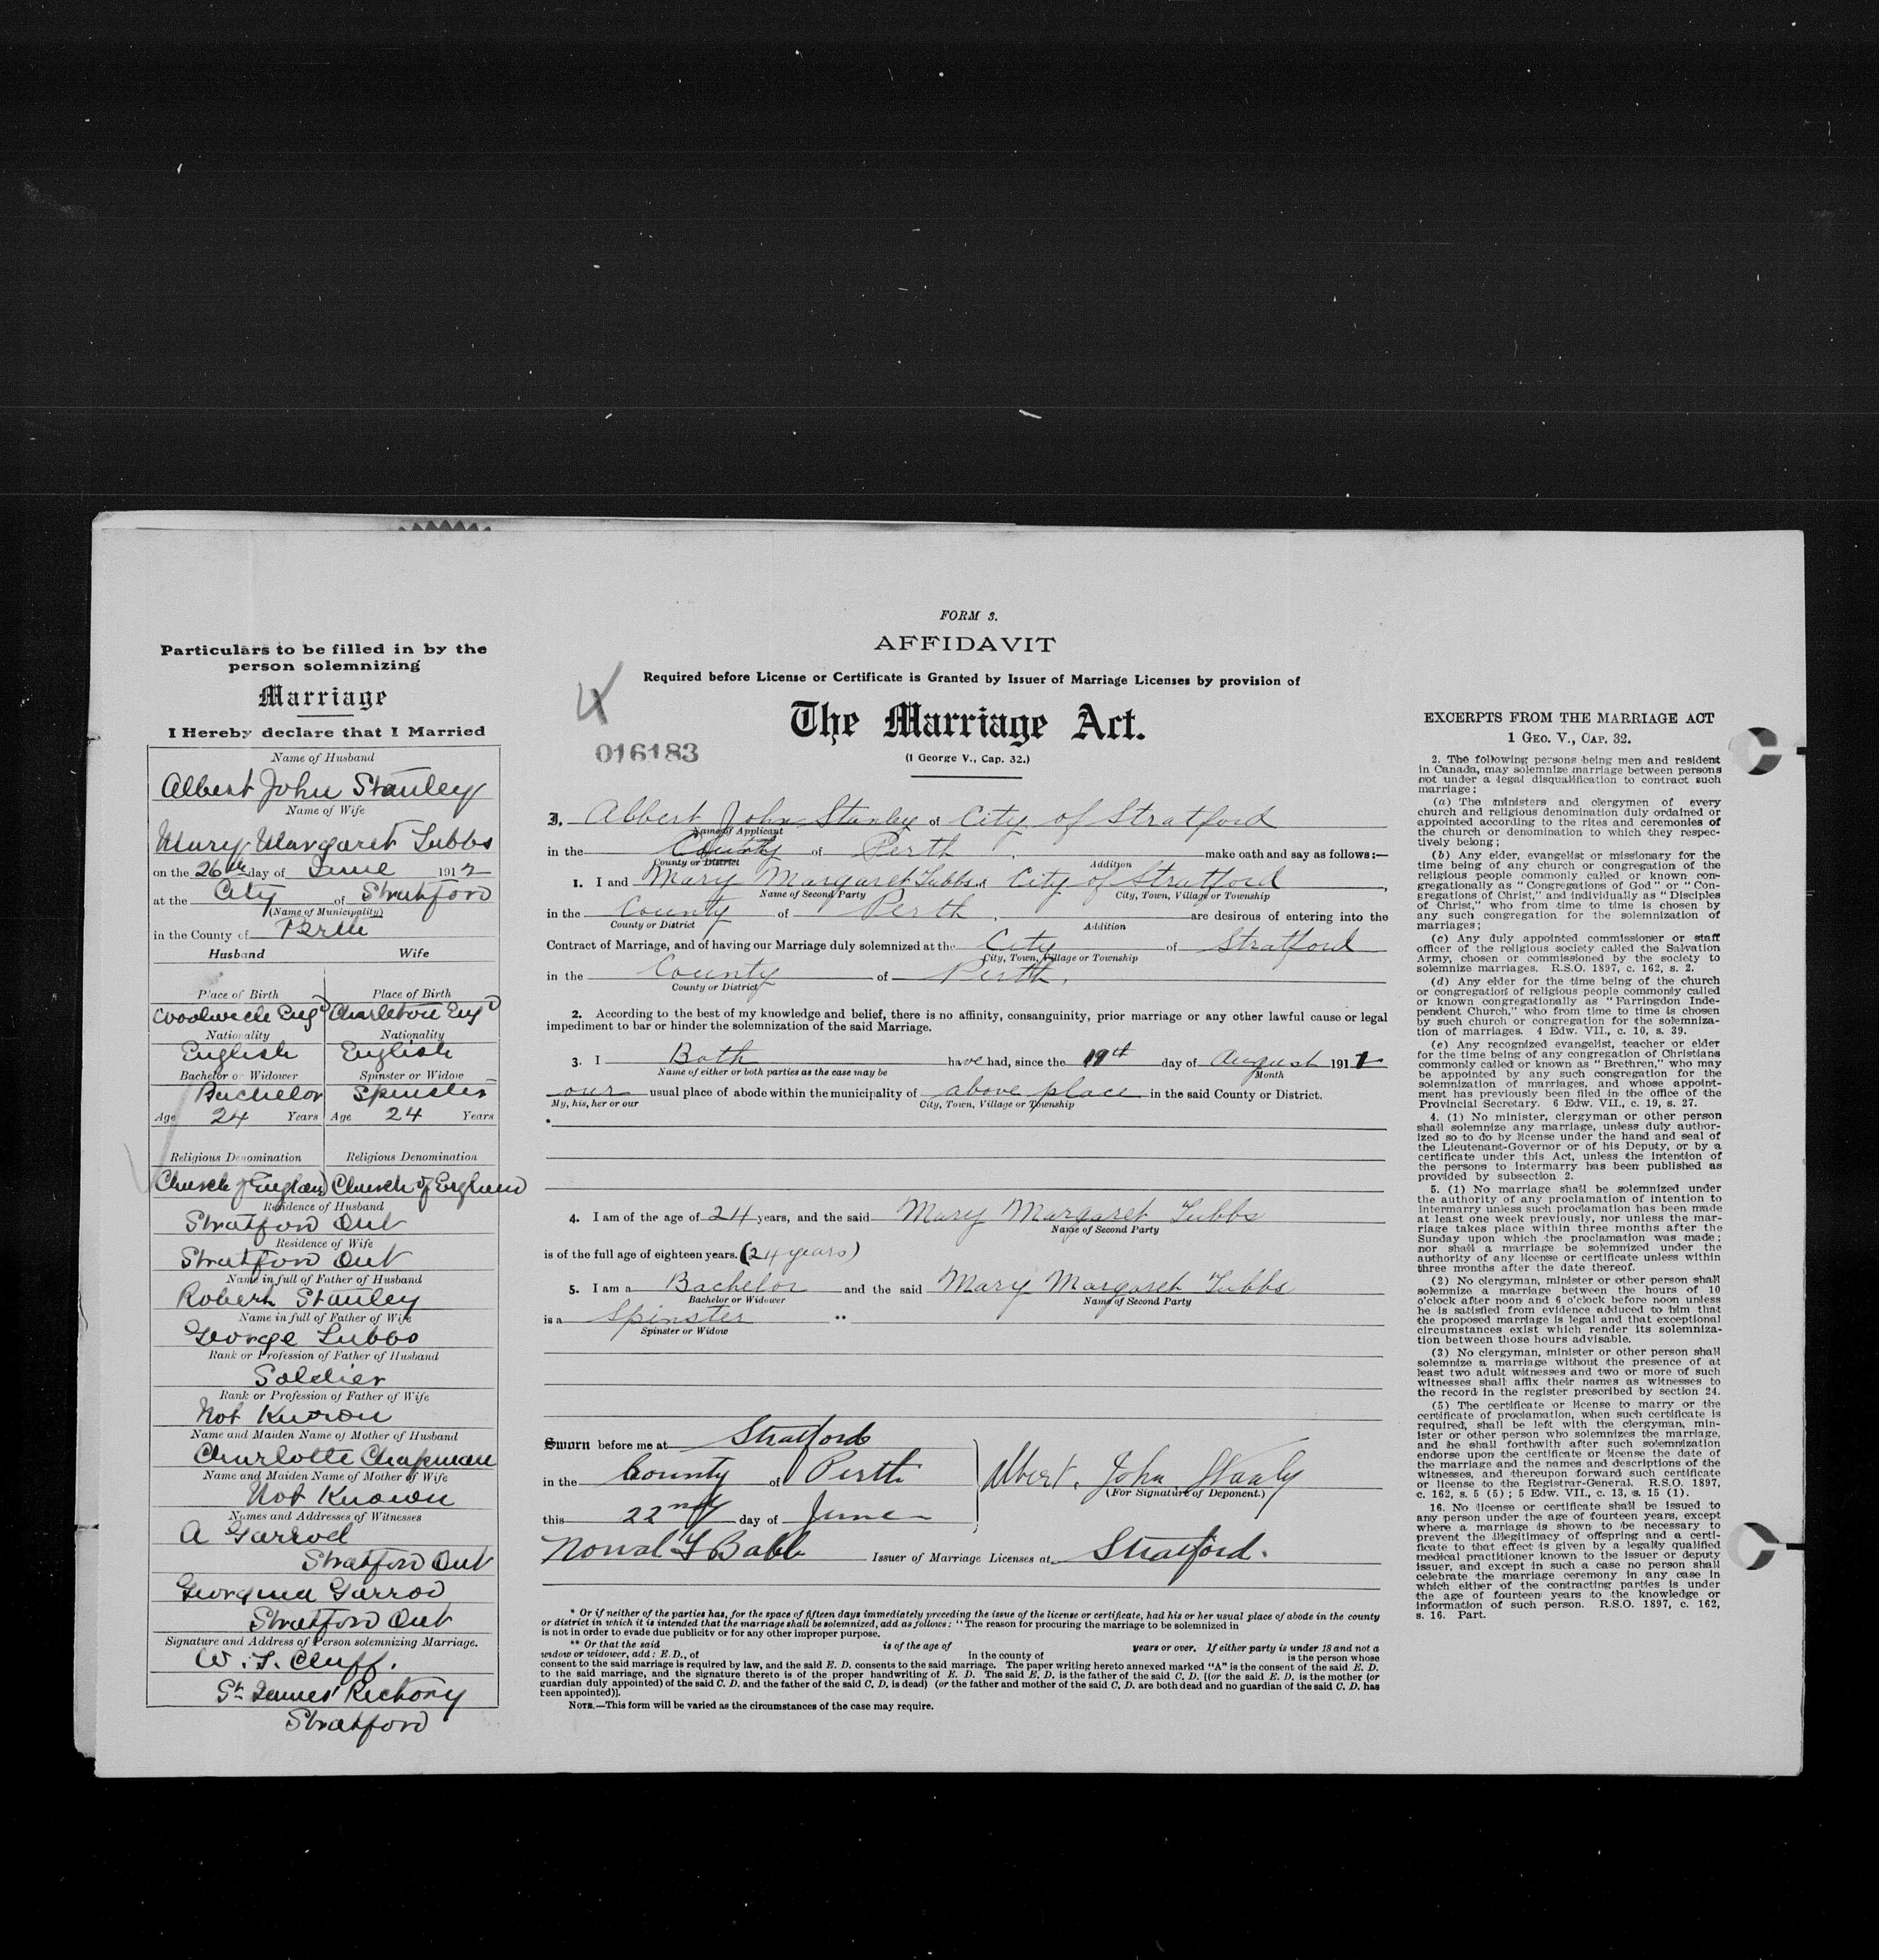 Particulars to be filled in by the
person solemnizing
Marriage
I Hereby declare that I Married
Name of Husband
Albert John Stanley
Name of Wife
Mary Margaret Tubbs
on the 26th day of June 1912
at the City of Stratford
(Name of Municipality)
in the County of Perth
Husband Wife
Place of Birth Place of Birth
Woolwich Eng'd Charleton Eng'd
Nationality Nationality
English English
Bachelor or Widower Spinster or Widow
Bachelor Spinster
Age 24 Years Age 24 Years
Religious Denomination Religious Denomination
Church of England Church of England
Residence of Husband
Stratford Ont
Residence of Wife
Stratford Ont
Name in full of Father of Husband
Robert Stanley
Name in full of Father of Wife
George Tubbs
Rank or Profession of Father of Husband
Soldier
Rank or Profession of Father of Wife
Not Known
Name and Maiden Name of Mother of Husband
Charlotte Chapman
Name and Maiden Name of Mother of Wife
Not Known
Names and Addresses of Witnesses
A Garrod
Stratford Ont
Georgina Garrod
Stratford Ont
Signature and Address of Person solemnizing Marriage.
W. T. Cluff.
St James' Rectory
Stratford
FORM 3.
AFFIDAVIT
Required before License or Certificate is Granted by Issuer of Marriage Licenses by provision of
The Marriage Act.
016183
(1 George V., Cap. 32.)
I, Albert John Stanley of City of Stratford
Name of Applicant
in the County of Perth, make oath and say as follows:—
County or District Addition
1. I and Mary Margaret Tubbs of City of Stratford,
Name of Second Party City, Town, Village or Township
in the County of Perth, are desirous of entering into the
County or District Addition
Contract of Marriage, and of having our Marriage duly solemnized at the City of Stratford
City, Town, Village or Township
in the County of Perth.
County or District
2. According to the best of my knowledge and belief, there is no affinity, consanguinity, prior marriage or any other lawful cause or legal
impediment to bar or hinder the solemnization of the said Marriage.
3. I Both have had, since the 19th day of August 1911
Name of either or both parties as the case may be Month
our usual place of abode within the municipality of above place in the said County or District.
My, his, her or our City, Town, Village or Township
*
4. I am of the age of 24 years, and the said Mary Margaret Tubbs
Name of Second Party
is of the full age of eighteen years. (24 years)
5. I am a Bachelor and the said Mary Margaret Tubbs
Bachelor or Widower Name of Second Party
is a Spinster **
Spinster or Widow
Sworn before me at Stratford
in the County of Perth
this 22nd day of June
Albert. John Stanly
(For Signature of Deponent.)
Norval T Babb Issuer of Marriage Licenses at Stratford.
* Or if neither of the parties has, for the space of fifteen days immediately preceding the issue of the license or certificate, had his or her usual place of abode in the county
or district in which it is intended that the marriage shall be solemnized, add as follows: "The reason for procuring the marriage to be solemnized in
is not in order to evade due publicity or for any other improper purpose.
** Or that the said is of the age of years or over. If either party is under 18 and not a
widow or widower, add: E. D., of in the county of is the person whose
consent to the said marriage is required by law, and the said E. D. consents to the said marriage. The paper writing hereto annexed marked "A" is the consent of the said E. D.
to the said marriage, and the signature thereto is of the proper handwriting of E. D. The said E. D. is the father of the said C. D. [(or the said E. D. is the mother (or
guardian duly appointed) of the said C. D. and the father of the said C. D. is dead) (or the father and mother of the said C. D. are both dead and no guardian of the said C. D. has
been appointed)].
NOTE.—This form will be varied as the circumstances of the case may require.
EXCERPTS FROM THE MARRIAGE ACT
1 GEO. V., CAP. 32.
2. The following persons being men and resident
in Canada, may solemnize marriage between persons
not under a legal disqualification to contract such
marriage:
(a) The ministers and clergymen of every
church and religious denomination duly ordained or
appointed according to the rites and ceremonies of
the church or denomination to which they respec-
tively belong;
(b) Any elder, evangelist or missionary for the
time being of any church or congregation of the
religious people commonly called or known con-
gregationally as "Congregations of God" or "Con-
gregations of Christ," and individually as "Disciples
of Christ," who from time to time is chosen by
any such congregation for the solemnization of
marriages;
(c) Any duly appointed commissioner or staff
officer of the religious society called the Salvation
Army, chosen or commissioned by the society to
solemnize marriages. R.S.O. 1897, c. 162, s. 2.
(d) Any elder for the time being of the church
or congregation of religious people commonly called
or known congregationally as "Farringdon Inde-
pendent Church," who from time to time is chosen
by such church or congregation for the solemniza-
tion of marriages. 4 Edw. VII., c. 10, s. 39.
(e) Any recognized evangelist, teacher or elder
for the time being of any congregation of Christians
commonly called or known as "Brethren," who may
be appointed by any such congregation for the
solemnization of marriages, and whose appoint-
ment has previously been filed in the office of the
Provincial Secretary. 6 Edw. VII., c. 19, s. 27.
4. (1) No minister, clergyman or other person
shall solemnize any marriage, unless duly author-
ized so to do by license under the hand and seal of
the Lieutenant-Governor or of his Deputy, or by a
certificate under this Act, unless the intention of
the persons to intermarry has been published as
provided by subsection 2.
5. (1) No marriage shall be solemnized under
the authority of any proclamation of intention to
intermarry unless such proclamation has been made
at least one week previously, nor unless the mar-
riage takes place within three months after the
Sunday upon which the proclamation was made;
nor shall a marriage be solemnized under the
authority of any license or certificate unless within
three months after the date thereof.
(2) No clergyman, minister or other person shall
solemnize a marriage between the hours of 10
o'clock after noon and 6 o'clock before noon unless
he is satisfied from evidence adduced to him that
the proposed marriage is legal and that exceptional
circumstances exist which render its solemniza-
tion between those hours advisable.
(3) No clergyman, minister or other person shall
solemnize a marriage without the presence of at
least two adult witnesses and two or more of such
witnesses shall affix their names as witnesses to
the record in the register prescribed by section 24.
(5) The certificate or license to marry or the
certificate of proclamation, when such certificate is
required, shall be left with the clergyman, min-
ister or other person who solemnizes the marriage,
and he shall forthwith after such solemnization
endorse upon the certificate or license the date of
the marriage and the names and descriptions of the
witnesses, and thereupon forward such certificate
or license to the Registrar-General. R.S.O. 1897,
c. 162, s. 5 (5); 5 Edw. VII., c. 13, s. 15 (1).
16. No license or certificate shall be issued to
any person under the age of fourteen years, except
where a marriage is shown to be necessary to
prevent the illegitimacy of offspring and a certi-
ficate to that effect is given by a legally qualified
medical practitioner known to the issuer or deputy
issuer, and except in such a case no person shall
celebrate the marriage ceremony in any case in
which either of the contracting parties is under
the age of fourteen years to the knowledge or
information of such person. R.S.O. 1897, c. 162,
s. 16. Part.